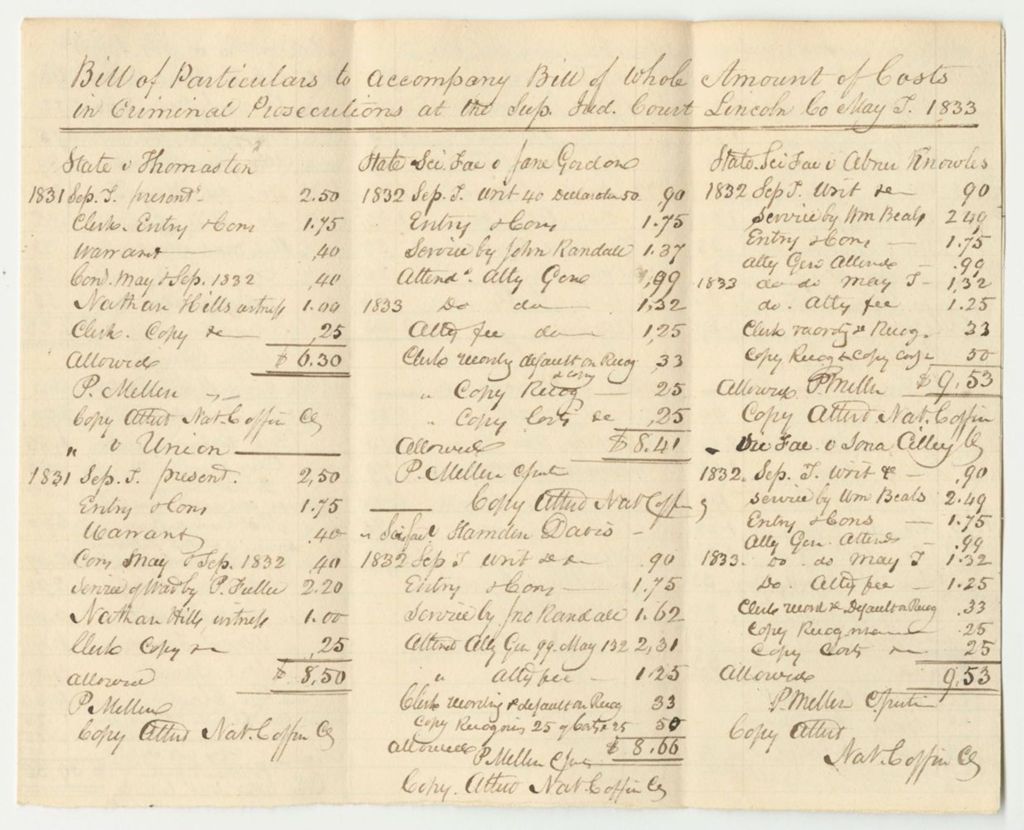 Bill of Particulars to accompany Bill of Whole Amount of Costs
in Criminal Prosecutions at the Sup. Jud. Court Lincoln Co May T. 1833
State v Thomaston
1831 Sep. T. present. 2.50
Clerk. Entry & Cons 1.75
Warrant ,40
Con.d May & Sep. 1832 ,40
Nathan Hills witness 1.00
Clerk. Copy &c ,25
Allowed $ 6.30
P. Mellen
Copy Attest Nat. Coffin Clk
" v Union
1831 Sep. T. present. 2,50
Entry & Cons 1.75
Warrant .40
Con. May & Sep. 1832 ,40
Service of by P. Fuller 2.20
Nathan Hills, witness 1.00
Clerk Copy &c ,25
allowed $ 8,50
P. Mellen
Copy Attest Nat. Coffin Clk
State Sci. Fae v Jane Gordon
1832 Sep. T. Writ 40 Declaration 50 ,90
Entry & Cons 1.75
Service by John Randall 1.37
Attend.e Atty Genl ,99
1833 Do do 1,32
Atty fee do 1,25
Clerk recordg default on Recog ,33
& copy
" Copy Recog 25
" Copy Costs &c ,25
Allowed $ 8.41
P. Mellen
Copy Attest Nat Coffin
" Sci fae v Hamden Davis
1832 Sep T Writ &c &c .90
Entry & Cons 1.75
Service by Jno Randall 1.62
Attend Atty Gen 99. May 132 2,31
" atty fee 1.25
Clerk recording & default on Recog 33
Copy Recog 25 of Costs 25 50
allowed P. Mellen $ 8.66
Copy. Attest Nat. Coffin Clk
State Sci Fae v Abner Knowles
1832 Sep T. Writ &c 90
Service by Wm Beals 2 49
Entry & Cons 1.75
Atty Genl Attend .99
1833 do do May T 1,32
do. Atty fee 1.25
Clerk recordg & Recog. 33
Copy Recog & Copy Costs 50
Allowed P. Mellen $ 9,53
Copy Attest Nat. Coffin
Sci Fae v Jona Alley Clk
1832. Sep. T. Writ &c .90
Service by Wm Beals 2.49
Entry & Cons 1.75
Atty Gen. Attend .99
1833. Do. do May T 1.32
Do. Atty fee 1.25
Clerk record & Default on Recog .33
Copy Recog .25
Copy Costs &c 25
Allowed 9.53
P. Mellen
Copy Attest
Nat. Coffin Clk